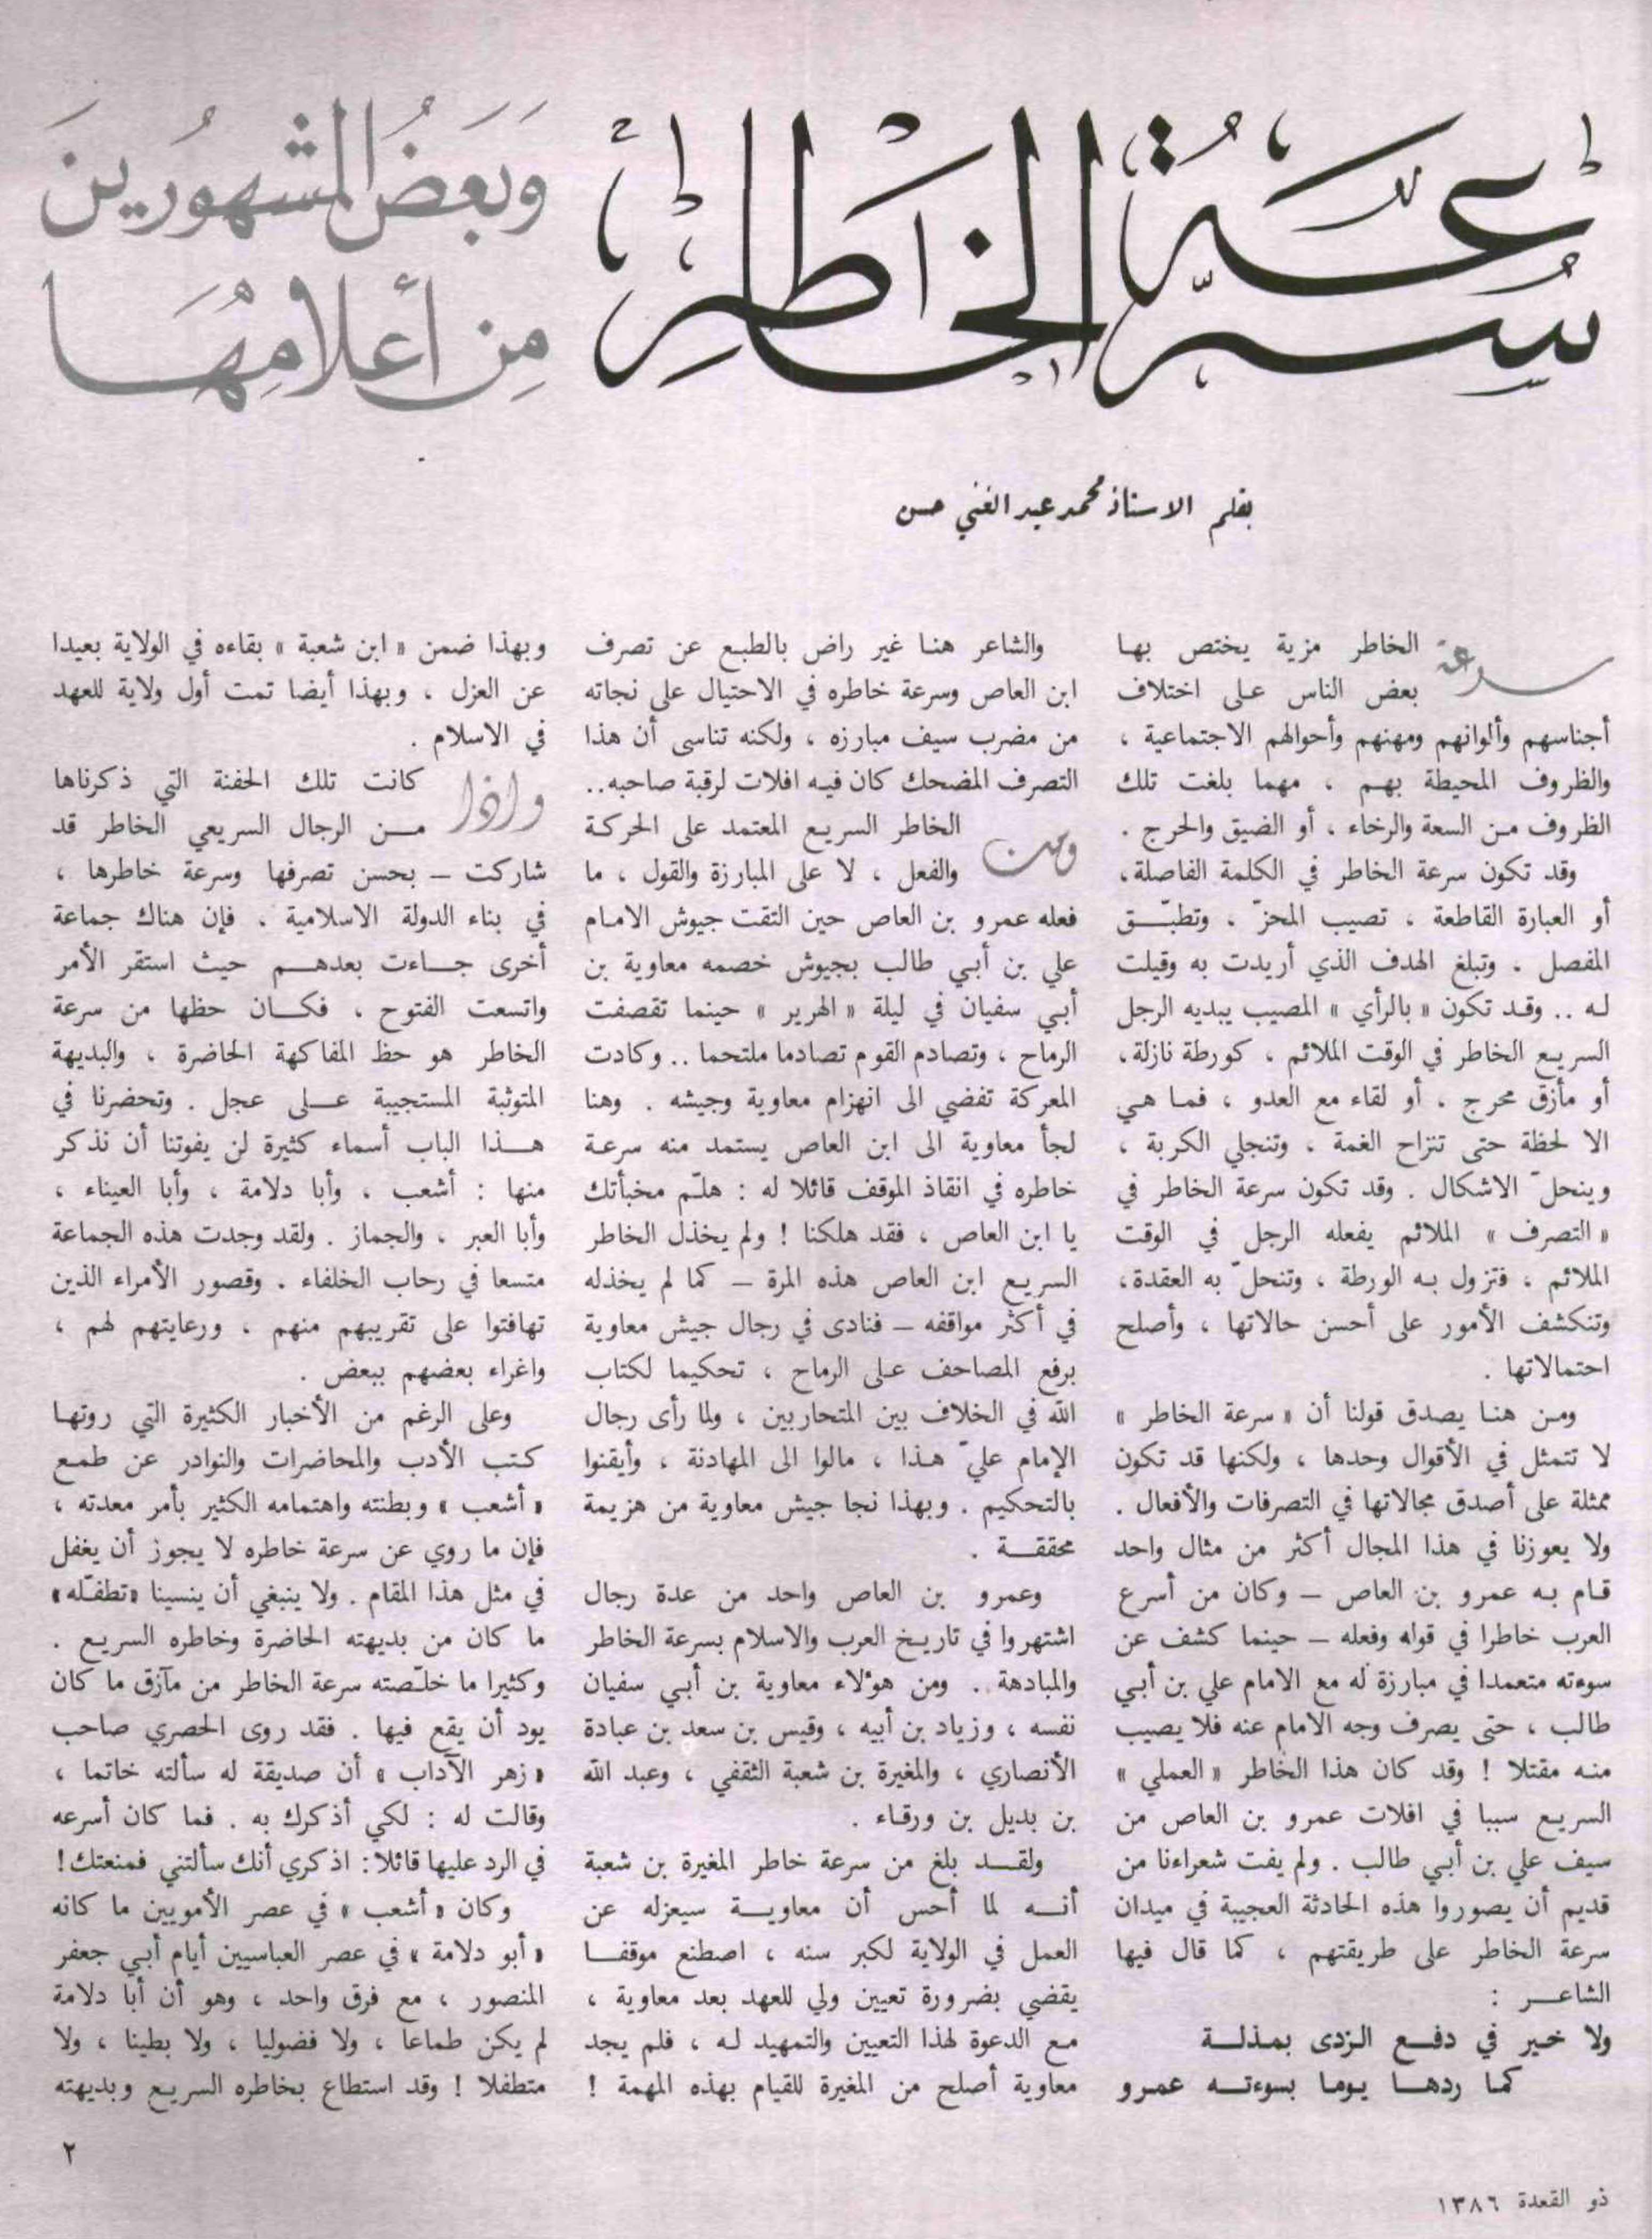 سُرعَةُ الخَاطِر
وَبَعضُ المشهُورينَ
مِن أعلامِهَا
بقلم الاستاذ محمد عبد الغني حسن
سرعة الخاطر مزية يختص بها
بعض الناس على اختلاف
أجناسهم وألوانهم ومهنهم وأحوالهم الاجتماعية ،
والظروف المحيطة بهم ، مهما بلغت تلك
الظروف من السعة والرخاء ، أو الضيق والحرج .
وقد تكون سرعة الخاطر في الكلمة الفاصلة،
أو العبارة القاطعة ، تصيب المحزّ ، وتطبّق
المفصل ، وتبلغ الهدف الذي أريدت به وقيلت
له .. وقد تكون « بالرأي » المصيب يبديه الرجل
السريع الخاطر في الوقت الملائم ، كورطة نازلة،
أو مأزق محرج ، أو لقاء مع العدو ، فما هي
الا لحظة حتى تنزاح الغمة ، وتنجلي الكربة ،
وينحلّ الاشكال . وقد تكون سرعة الخاطر في
« التصرف » الملائم يفعله الرجل في الوقت
الملائم ، فتزول به الورطة ، وتنحلّ به العقدة،
وتنكشف الأمور على أحسن حالاتها ، وأصلح
احتمالاتها .
ومن هنا يصدق قولنا أن « سرعة الخاطر »
لا تتمثل في الأقوال وحدها ، ولكنها قد تكون
ممثلة على أصدق مجالاتها في التصرفات والأفعال .
ولا يعوزنا في هذا المجال أكثر من مثال واحد
قام به عمرو بن العاص – وكان من أسرع
العرب خاطرا في قوله وفعله – حينما كشف عن
سوءته متعمدا في مبارزة له مع الامام علي بن أبي
طالب ، حتى يصرف وجه الامام عنه فلا يصيب
منه مقتلا ! وقد كان هذا الخاطر « العملي »
السريع سببا في افلات عمرو بن العاص من
سيف علي بن أبي طالب . ولم يفت شعراءنا من
قديم أن يصوروا هذه الحادثة العجيبة في ميدان
سرعة الخاطر على طريقتهم ، كما قال فيها
الشاعر :
ولا خير في دفع الردى بمذلة
كما ردها يوما بسوءته عمرو
والشاعر هنا غير راض بالطبع عن تصرف
ابن العاص وسرعة خاطره في الاحتيال على نجاته
من مضرب سيف مبارزه ، ولكنه تناسى أن هذا
التصرف المضحك كان فيه افلات لرقبة صاحبه..
ومن الخاطر السريع المعتمد على الحركة
والفعل ، لا على المبارزة والقول ، ما
فعله عمرو بن العاص حين التقت جيوش الامام
علي بن أبي طالب بجيوش خصمه معاوية بن
أبي سفيان في ليلة « الهرير » حينما تقصفت
الرماح ، وتصادم القوم تصادما ملتحما .. وكادت
المعركة تفضي الى انهزام معاوية وجيشه . وهنا
لجأ معاوية الى ابن العاص يستمد منه سرعة
خاطره في انقاذ الموقف قائلا له : هلّم مخبأتك
يا ابن العاص ، فقد هلكنا ! ولم يخذل الخاطر
السريع ابن العاص هذه المرة – كما لم يخذله
في أكثر مواقفه – فنادى في رجال جيش معاوية
برفع المصاحف على الرماح ، تحكيما لكتاب
الله في الخلاف بين المتحاربين ، ولما رأى رجال
الإمام عليّ هذا ، مالوا الى المهادنة ، وأيقنوا
بالتحكيم . وبهذا نجا جيش معاوية من هزيمة
محققة .
وعمرو بن العاص واحد من عدة رجال
اشتهروا في تاريخ العرب والاسلام بسرعة الخاطر
والمبادهة .. ومن هؤلاء معاوية بن أبي سفيان
نفسه ، وزياد بن أبيه ، وقيس بن سعد بن عبادة
الأنصاري ، والمغيرة بن شعبة الثقفي ، وعبد الله
بن بديل بن ورقاء .
ولقد بلغ من سرعة خاطر المغيرة بن شعبة
أنه لما أحس أن معاوية سيعزله عن
العمل في الولاية لكبر سنه ، اصطنع موقفا
يقضي بضرورة تعيين ولي للعهد بعد معاوية ،
مع الدعوة لهذا التعيين والتمهيد له ، فلم يجد
معاوية أصلح من المغيرة للقيام بهذه المهمة !
وبهذا ضمن « ابن شعبة » بقاءه في الولاية بعيدا
عن العزل ، وبهذا أيضا تمت أول ولاية للعهد
في الاسلام .
واذا كانت تلك الحفنة التي ذكرناها
من الرجال السريعي الخاطر قد
شاركت – بحسن تصرفها وسرعة خاطرها ،
في بناء الدولة الاسلامية . فإن هناك جماعة
أخرى جاءت بعدهم حيث استقر الأمر
واتسعت الفتوح ، فكان حظها من سرعة
الخاطر هو حظ المفاكهة الحاضرة ، والبديهة
المتوثبة المستجيبة على عجل . وتحضرنا في
هذا الباب أسماء كثيرة لن يفوتنا أن نذكر
منها : أشعب ، وأبا دلامة ، وأبا العيناء ،
وأبا العبر ، والجماز . ولقد وجدت هذه الجماعة
متسعا في رحاب الخلفاء . وقصور الأمراء الذين
تهافتوا على تقريبهم منهم ، ورعايتهم لهم ،
واغراء بعضهم ببعض .
وعلى الرغم من الأخبار الكثيرة التي روتها
كتب الأدب والمحاضرات والنوادر عن طمع
« أشعب » وبطنته واهتمامه الكثير بأمر معدته ،
فإن ما روي عن سرعة خاطره لا يجوز أن يغفل
في مثل هذا المقام . ولا ينبغي أن ينسينا «تطفّله»
ما كان من بديهته الحاضرة وخاطره السريع .
وكثيرا ما خلّصته سرعة الخاطر من مآزق ما كان
يود أن يقع فيها . فقد روى الحصري صاحب
« زهر الآداب » أن صديقة له سألته خاتما ،
وقالت له : لكي أذكرك به . فما كان أسرعه
في الرد عليها قائلا: اذكري أنك سألتني فمنعتك!
وكان « أشعب » في عصر الأمويين ما كانه
« أبو دلامة » في عصر العباسيين أيام أبي جعفر
المنصور ، مع فرق واحد ، وهو أن أبا دلامة
لم يكن طماعا ، ولا فضوليا ، ولا بطينا ، ولا
متطفلا ! وقد استطاع بخاطره السريع وبديهته
٢
ذو القعدة ١٣٨٦